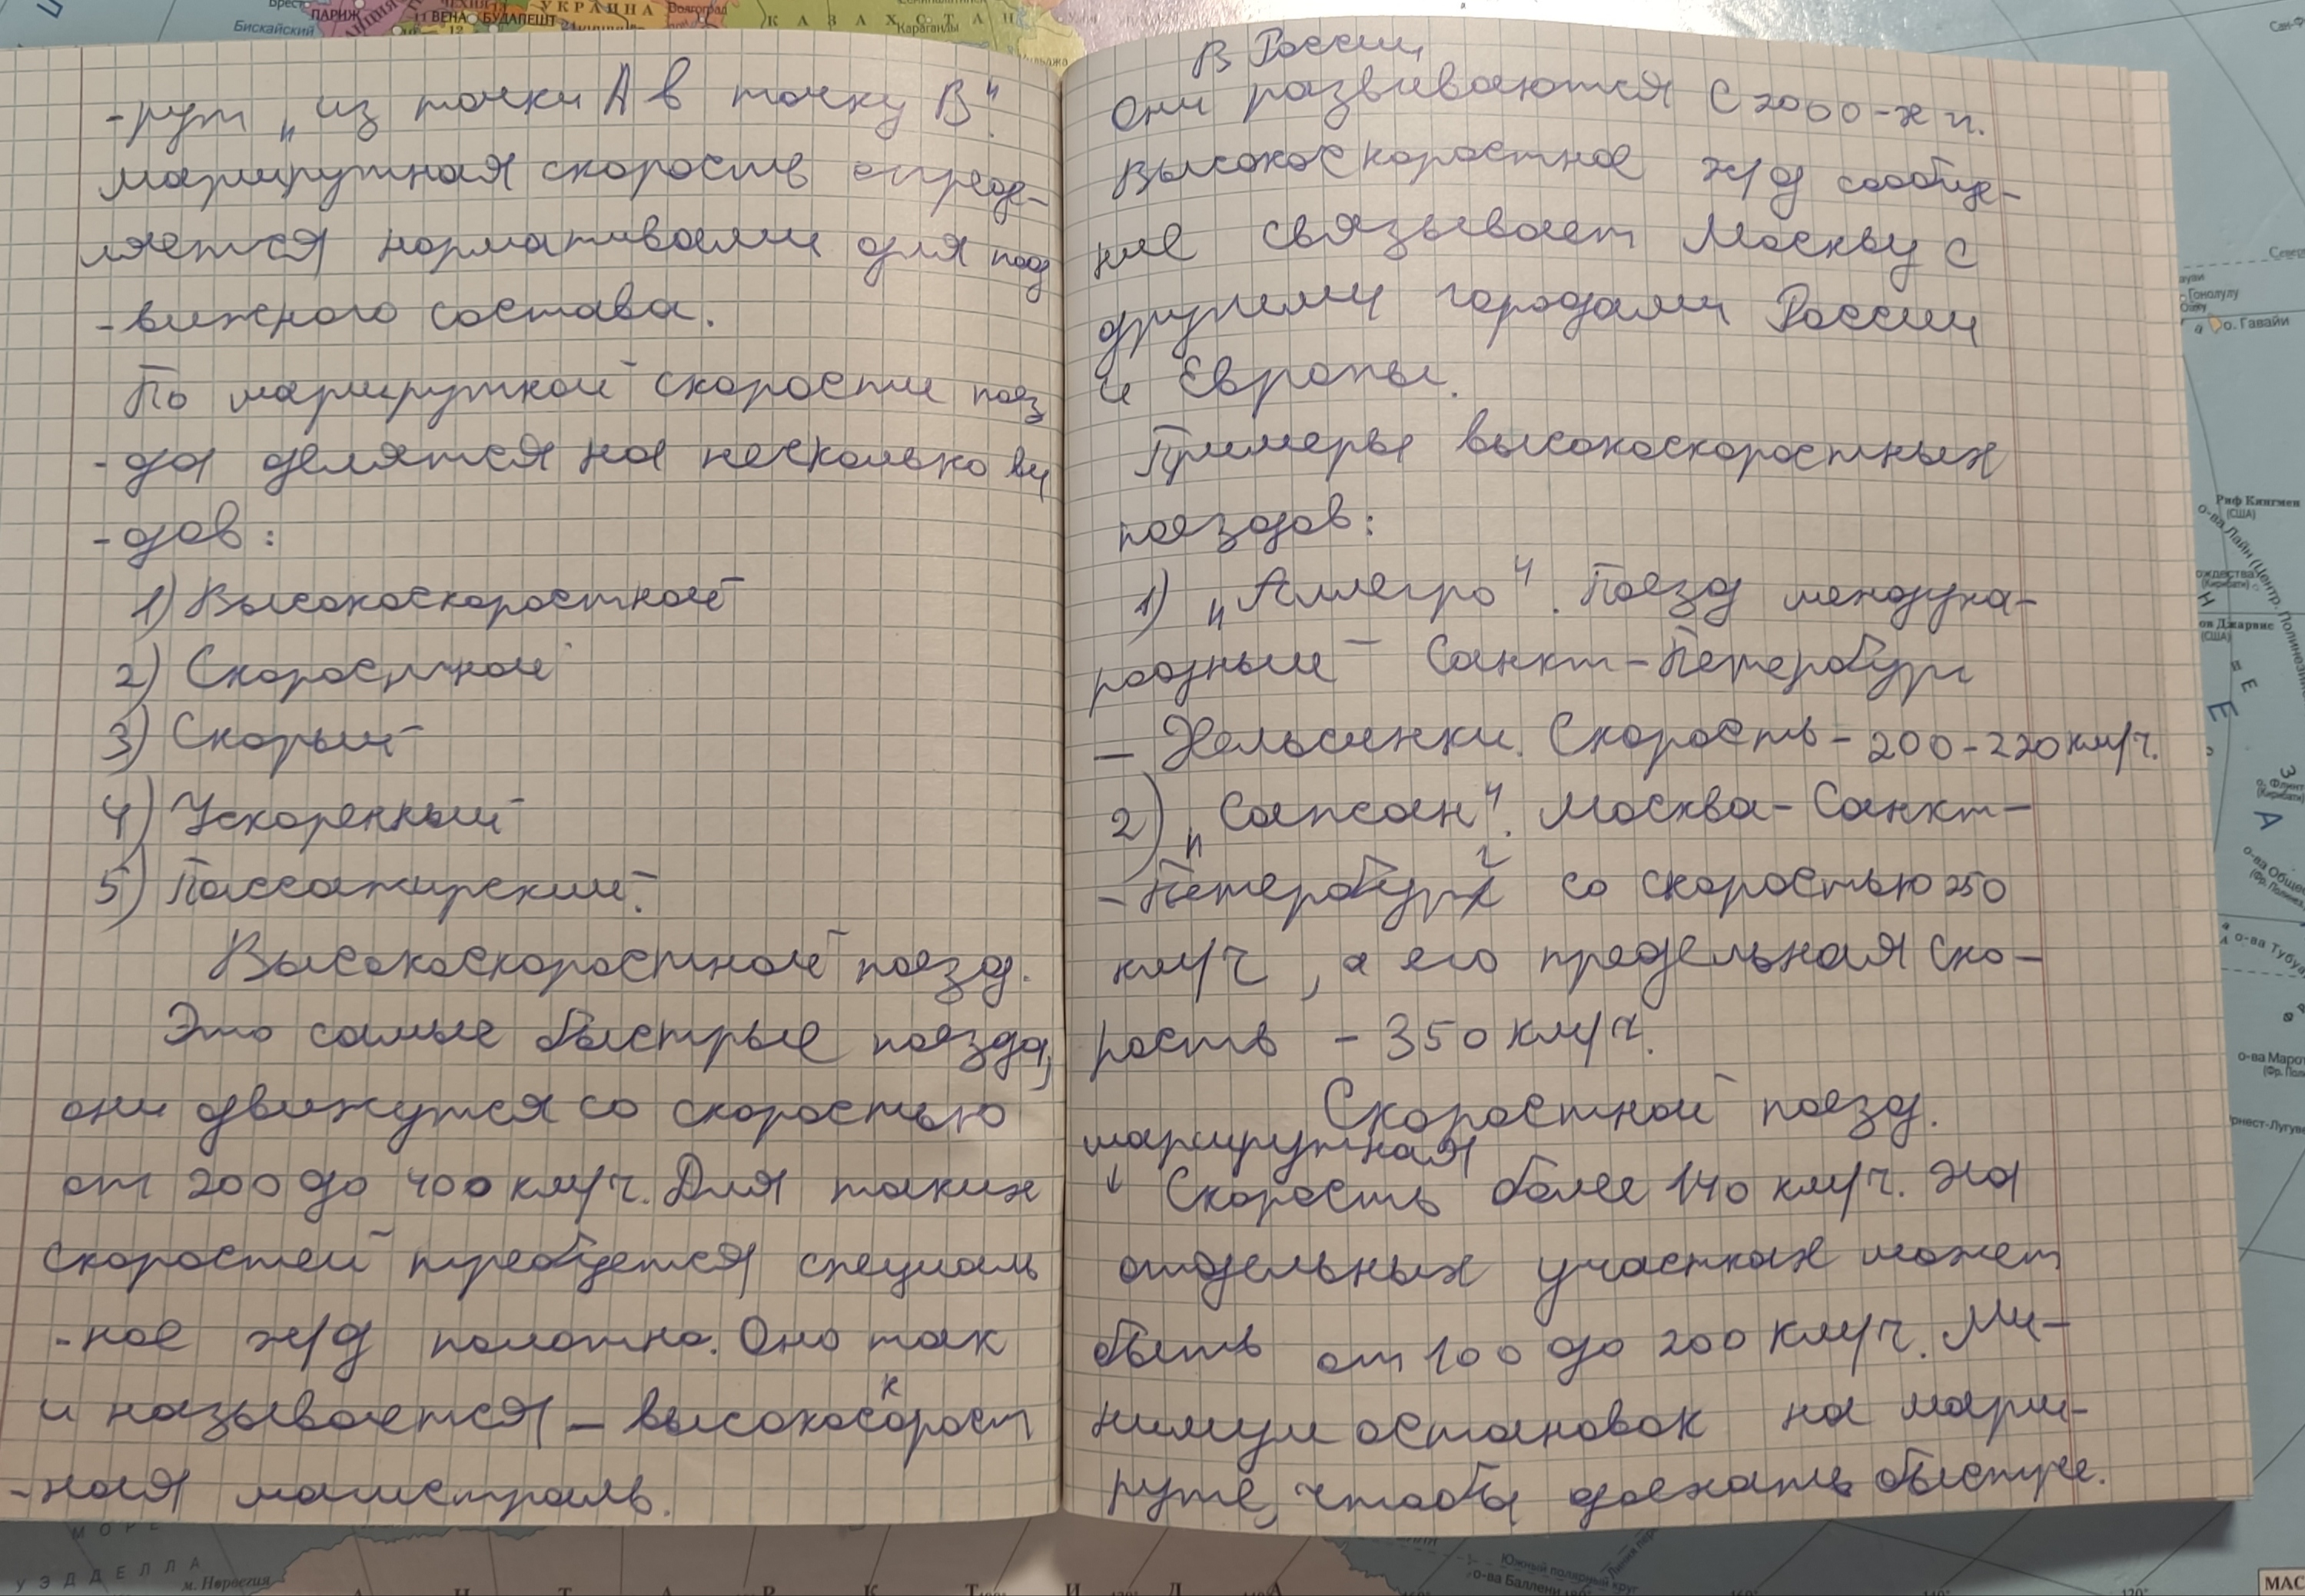 -рут „из точки А в точку В".
маршрутная скорость опреде-
ляется нормативами для под
-вижного состава.
По маршрутной скорости поез
-да делятся на несколько ви
-дов:
1) Высокоскоростной
2) Скоростной
3) Скорый
4) Ускоренный
5) Пассажирский.
Высокоскоростной поезд.
Это самые быстрые поезда,
они движутся со скоростью
от 200 до 400 км/ч. Для таких
скоростей требуется специаль
-ное ж/д полотно. Оно так
и называется – высокоскорост
-ная магистраль.
В России
они развиваются с 2000-х гг.
Высокоскоростное ж/д сообще-
ние связывает Москву с
другими городами России
и Европы.
Примеры высокоскоростных
поездов:
1) „Аллегро". Поезд междуна-
родный Санкт-Петербург
– Хельсинки. Скорость – 200-220 км/ч.
2) „Сапсан". Москва – Санкт-
-Петербург со скоростью 250
км/ч, а его предельная ско-
рость – 350 км/ч.
Скоростной поезд.
маршрутная
↓ Скорость более 140 км/ч. На
отдельных участках может
быть от 100 до 200 км/ч. Ми-
нимум остановок на марш-
руте, чтобы доехать быстрее.
ПАРИЖ
ВЕНА
БУДАПЕШТ
УКРАИНА
Волгоград
КАЗАХСТАН
Караганды
Бискайский
Гонолулу
о. Гавайи
Риф Кингмен
(США)
о-ва Лайн (Центр. Полинезийские
Джарвис
(США)
о-ва Тубуа
о-ва Марот
МОРЕ
УЭДДЕЛЛА
м. Норвегия
АНТАРКТИДА
Южный полярный круг
о-ва Баллени
МАС